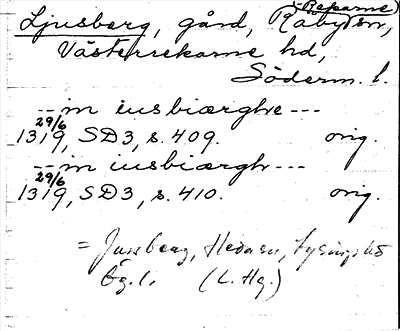 (Rekarne)
Ljusberg, gård, Råby sn,
Västerrekarne hd,
Söderm. l.
--- in iusbiærghe ---
29/6
1319, SD3, s. 409. orig.
--- in iusbiærgh ---
29/6
1319, SD3, s. 410. orig.
= Jussberg, Hedesu, Lysings hd
Ög. l. (L. Hg.)